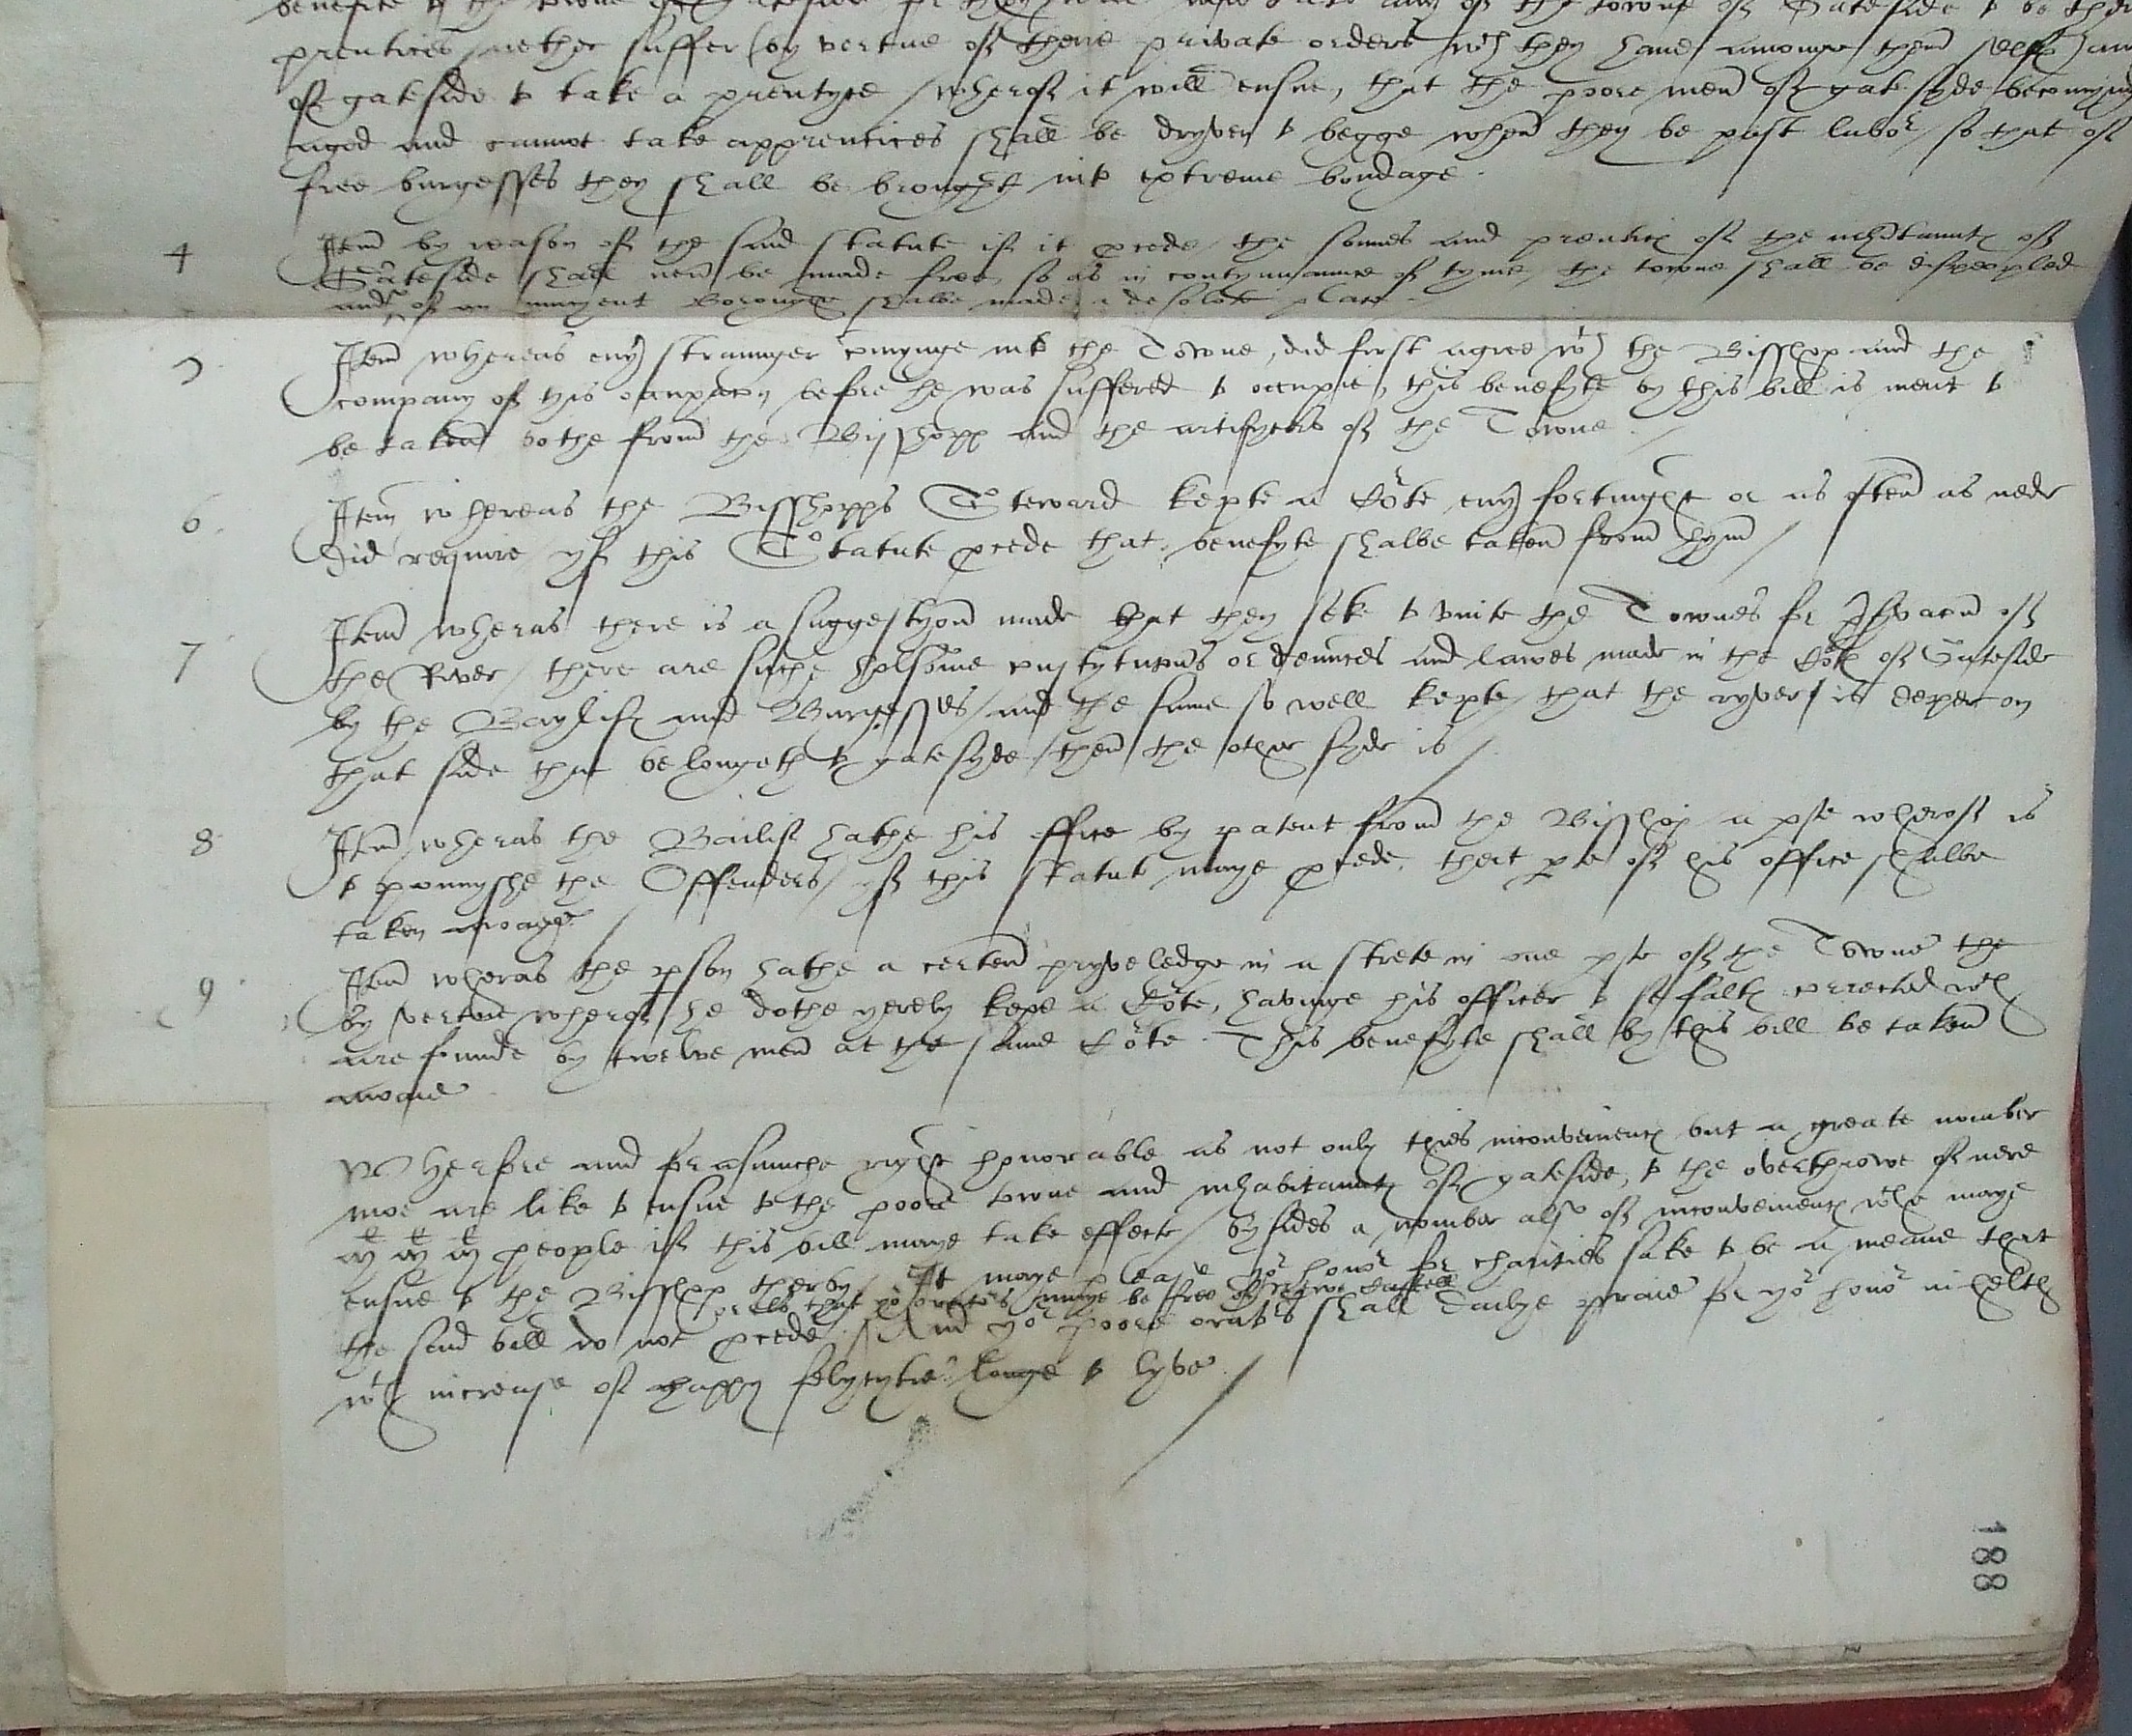 prentices nether suffer (by vertue of there private orders wch they have amonge them selfs) any
of gateside to take a prentyce / wherof it will ensue, that the poore men of gatesyde becomyng
aged and cannot take apprentices shall be dryven to begge when they be past labor / so that of
free burgesses they shall be brought into extreme bondage.
4 Item by reason of the said statute if it procede / the sonnes and prentices of the inhabitauntes of
Gateside shall nevr be made free, so as in contynuaunce of tyme, the towne shall be dispeopled
and of an auncyent Boroughe shalbe made a desolate place
5 Item whereas evry straunger comynge into the Towne, did first agree wth the Bisshop and the
company of his occupacon before he was suffered to occupie, this benefyte by this bill is ment to
be taken bothe from the Bisshopp and the artifycers of the Towne /
6 Item whereas the Bisshopps Steward kepte a Corte evry fortnight or as often as nede
did require / yf this Statute procede that benefyte shalbe taken from hym /
7 Item wheras there is a suggestyon made that they seke to unite the Townes for of
the River / there are suche holsome constytucons ordenunces and lawes made in the Corte of Gateside
by the Baylif and Burgesses / and the same so well kepte / that the ryver is deper on
that side that belongeth to gatesyde / then the other syde is /
8 Item wheras the Bailif hathe his office by patent from the Bisshop / a pte wherof is
to punnyshe the Offenders / yf this statute maye procede, that pte of his office shalbe
taken awaye /
9 Item wheras the pson hathe a certen pryveledge in a strete in one pte of the Towne the
by vertue wherof he dothe yerely kepe a Corte, havinge his officer to se faltes corrected wch
are founde by twelve men at the same Corte. This benefyte shall by this bill be taken
awaie
Wherfore and forasmuche right honorable as not only thies inconveniences but a greate nomber
moe are like to ensue to the poore towne and inhabitauntes of gateside, to the overthrowe of nere
people if this bill maye take effecte / bysides a nomber also of inconveniences wch maye
ensue to the Bisshop therby / It maye please yor honor for charities sake to be a meane that
or els that yor orators maye be free of Newe Castell
the said bill do not procede / And yor poore orators shall dailye praie for yor honor in helth
wth increase of happy felycytie longe to lyve /
188